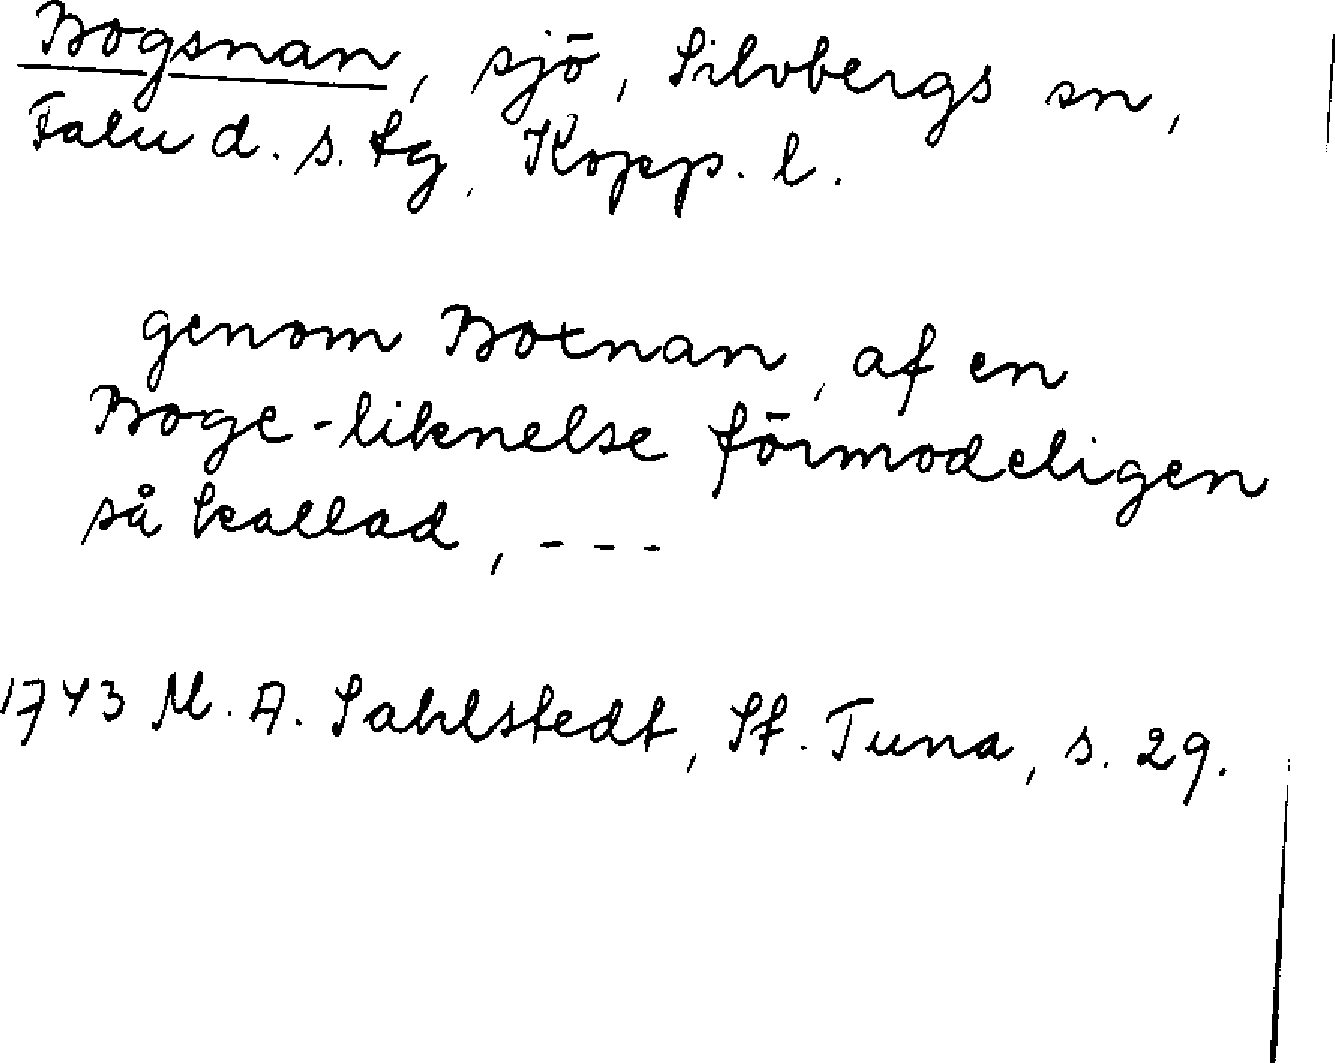 Bogsnan, sjö, Silvbergs sn,
Falu d. s. tg, Kopp. l.
genom Boxnan, af en
Boge-liknelse förmodeligen
så kallad, - - -
1743 M. A. Sahlstedt, St. Tuna, s. 29.